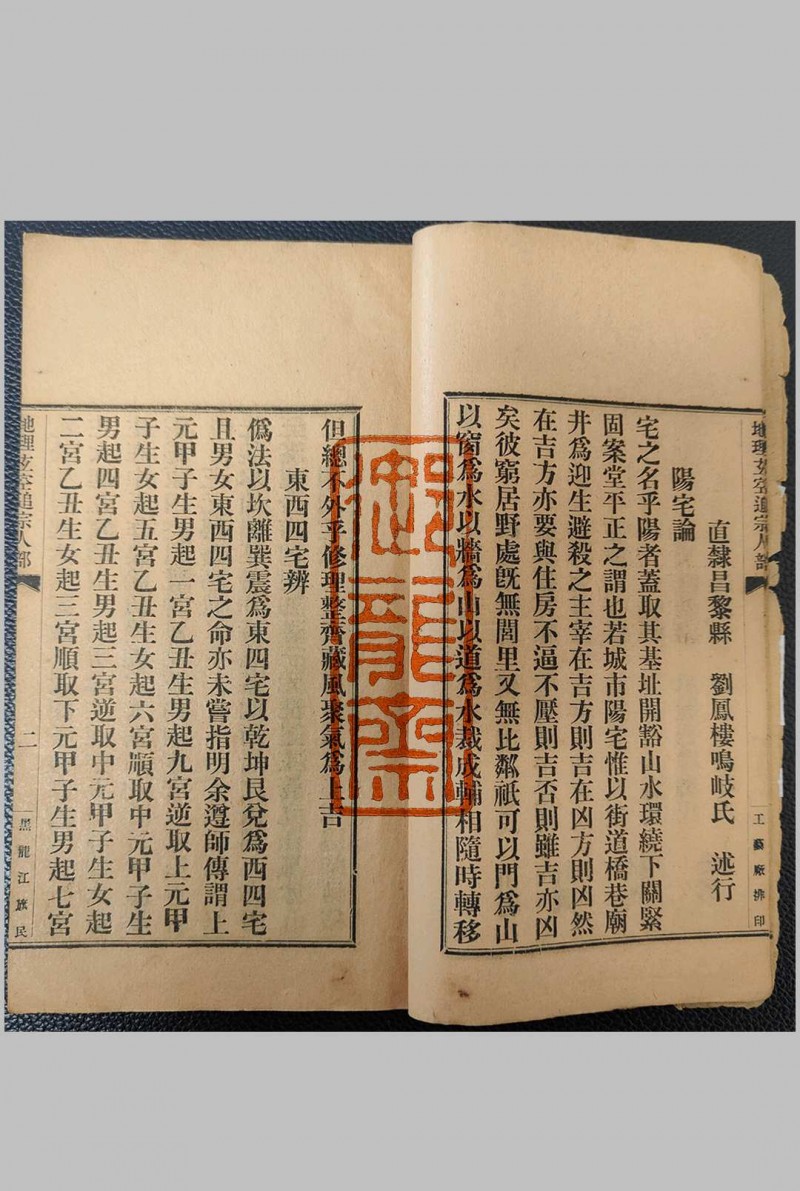 地理玄空追宗人部
工藝廠排印
直隸昌黎縣 劉鳳樓鳴岐氏 述行
陽宅論
宅之名乎陽者蓋取其基址開豁山水環繞下關緊
固案堂平正之謂也若城市陽宅惟以街道橋巷廟
井爲迎生避殺之主宰在吉方則吉在凶方則凶然
在吉方亦要與住房不逼不壓則吉否則雖吉亦凶
矣彼窮居野處旣無閭里又無比鄰祇可以門爲山
以窗爲水以牆爲山以道爲水裁成輔相隨時轉移
但總不外乎修理整齊藏風聚氣爲上吉
東西四宅辨
僞法以坎離巽震爲東四宅以乾坤艮兌爲西四宅
且男女東西四宅之命亦未嘗指明余遵師傳謂上
元甲子生男起一宮乙丑生男起九宮逆取上元甲
子生女起五宮乙丑生女起六宮順取中元甲子生
男起四宮乙丑生男起三宮逆取中元甲子生女起
二宮乙丑生女起三宮順取下元甲子生男起七宮
地理玄空追宗人部
二
黑龍江旗民